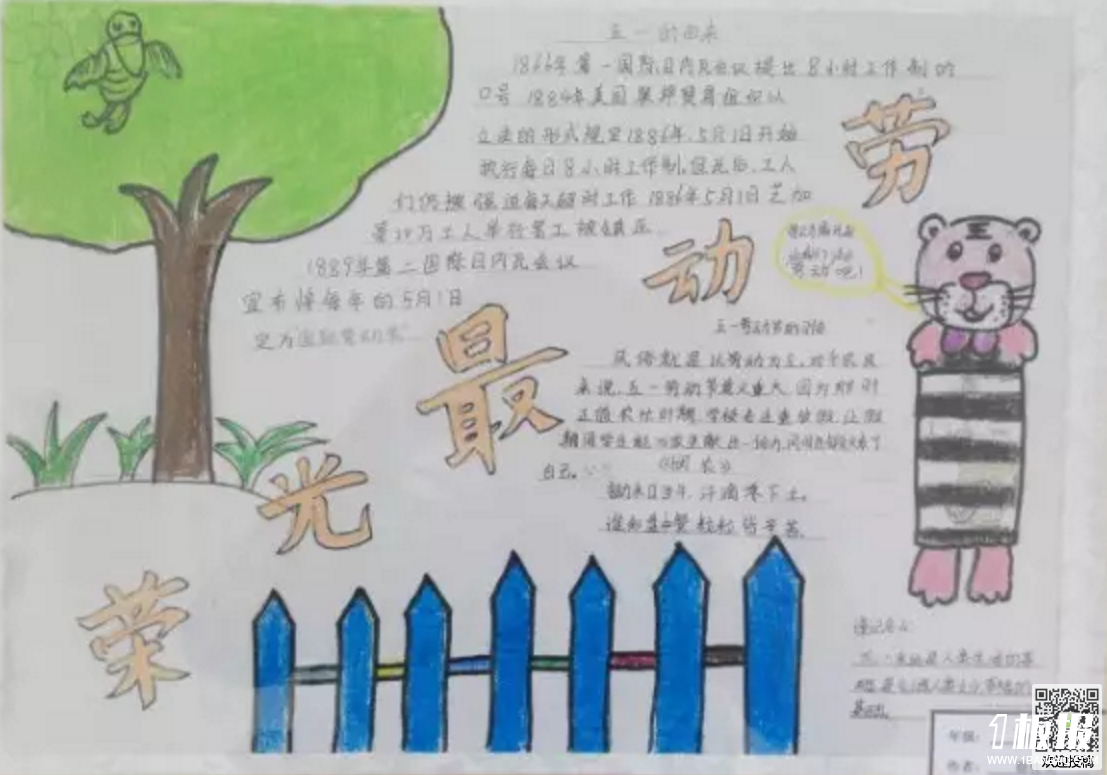 五一的由来
1866年第一国际日内瓦会议提出8小时工作制的
口号 1884年美国 贸易组织以
立法的形式规定1886年5月1日开始
执行每日8小时工作制,但此后,工人
们仍被强迫每天超时工作 1886年5月1日芝加
哥 万工人举行罢工被镇压
1889年第二国际日内瓦会议
宣布将每年的5月1日
定为国际劳动节
劳
动
最
光
荣
劳动吧!
五一劳动节的习俗
风俗就是以劳动为主,对于农民
来说,五一劳动节意义重大,因为那时
正值农忙时期,学校也还要放假,让假
期间学生能为家里
自己。
锄禾日当午,汗滴禾下土。
谁知盘中餐 粒粒皆辛苦。
是人类生活的基
基础。
年级:
作者:
1板报
WWW.1BANBAO.COM
欢迎投稿